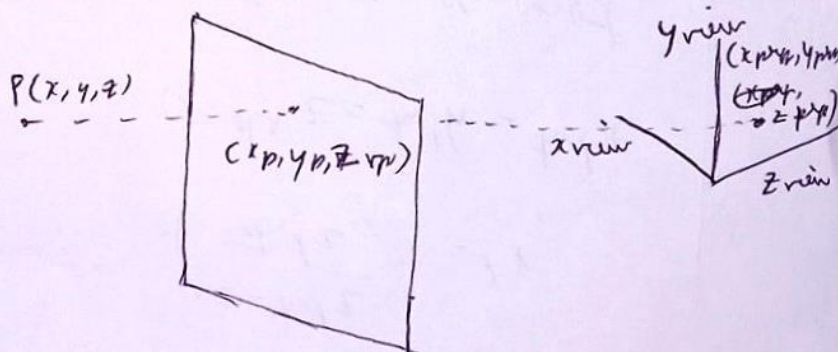 P(x, y, z)
(xp, yp, z vp)
y view
(x prp, y prp
z prp)
x view
z view